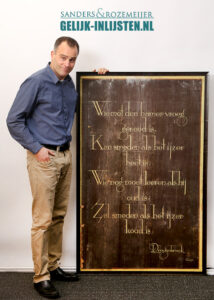 SANDERS&ROZEMEIJER
GELIJK-INLIJSTEN.NL
Wie met den hamer vroeg
geroud is,
Kan smeden als het ijzer
heet is.
Wie nog moet leeren als hij
oud is,
Zal smeden als het ijzer
koud is.